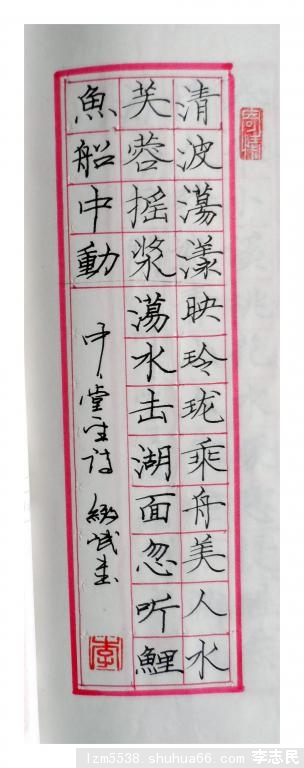 清波蕩漾映玲珑乘舟美人水
芙蓉摇漿蕩水击湖面忽听鯉
魚船中動
中堂
李
lzm5538.shuhua66.com 李志民